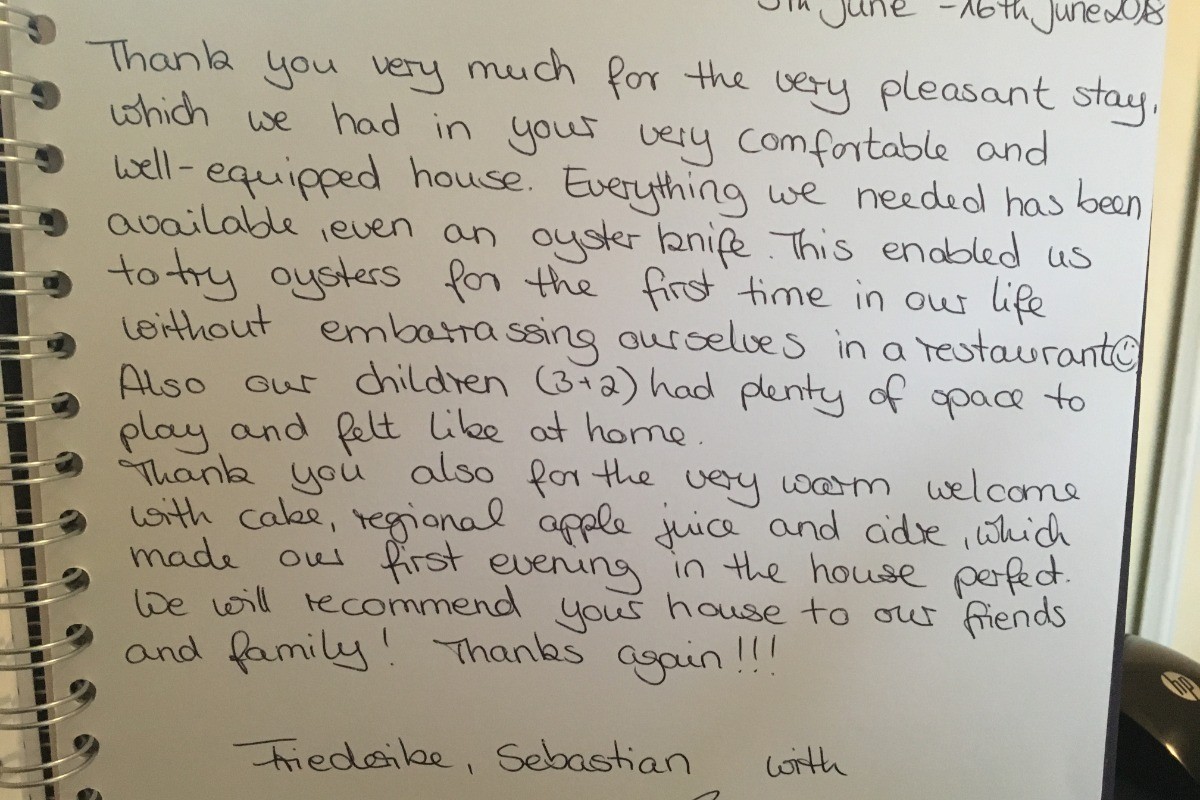 June - 16th June 2018
Thank you very much for the very pleasant stay,
which we had in your very comfortable and
well-equipped house. Everything we needed has been
available, even an oyster knife. This enabled us
to try oysters for the first time in our life
without embarrassing ourselves in a restaurant☺
Also our children (3+2) had plenty of space to
play and felt like at home.
Thank you also for the very warm welcome
with cake, regional apple juice and cidre, which
made our first evening in the house perfect.
We will recommend your house to our friends
and family! Thanks again!!!
Friederike, Sebastian with
hp